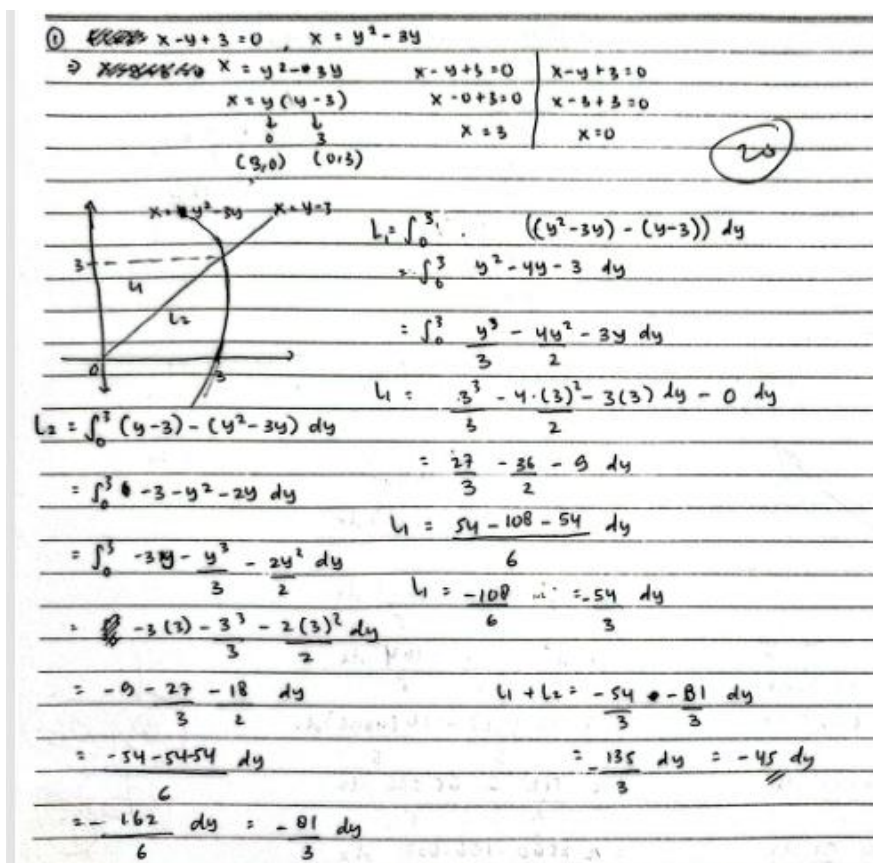 ① x-y+3=0, x = y²-3y
⇒ x = y²-3y
x = y(y-3)
↓ ↓
0 3
(3,0) (0,3)
x-y+3=0 | x-y+3=0
x-0+3=0 | x-3+3=0
x = 3 | x=0
20
x = y²-3y x=y-3
3
L1
L2
0 3
L₁ = ∫₀³ ((y²-3y) - (y-3)) dy
= ∫₀³ y²-4y-3 dy
= ∫₀³ y³/3 - 4y²/2 - 3y dy
L1 = 3³/3 - 4·(3)²/2 - 3(3) dy - 0 dy
= 27/3 - 36/2 - 9 dy
L1 = (54-108-54)/6 dy
L1 = -108/6 = -54/3 dy
L2 = ∫₀³ (y-3) - (y²-3y) dy
= ∫₀³ -3-y²-2y dy
= ∫₀³ -3y - y³/3 - 2y²/2 dy
= -3(3) - 3³/3 - 2(3)²/2 dy
= -9 - 27/3 - 18/2 dy
= (-54-54-54)/6 dy
= -162/6 dy = -81/3 dy
L1 + L2 = -54/3 - 81/3 dy
= -135/3 dy = -45 dy